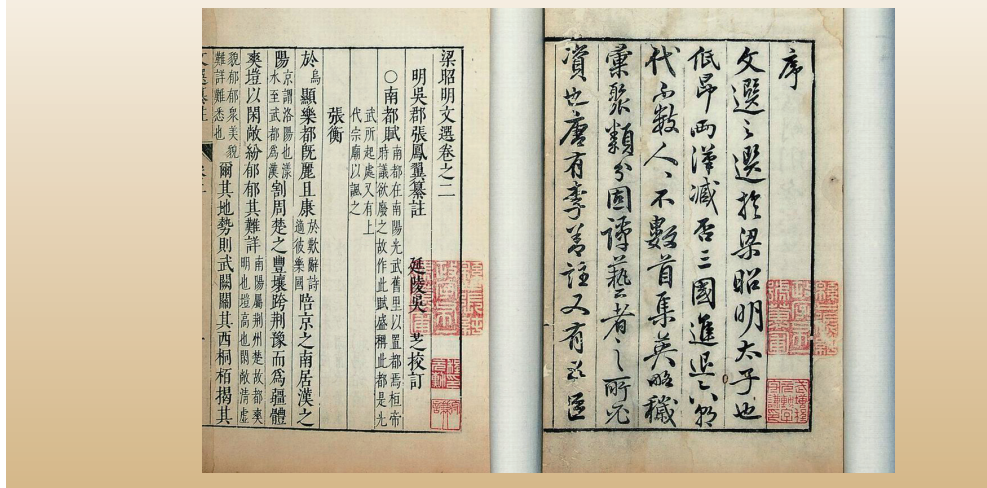 序
文選之選於梁昭明太子也
低昂兩漢臧否三國進退六朝
代不數人人不數首集英略穢
彙聚類分固譚藝者之所
資也唐有李善註又有五臣
梁昭明文選卷之二
明吳郡張鳳翼纂註 延陵吳 芝挍訂
○南都賦 南都在南陽光武舊里以置都焉桓帝時議欲廢之故作此賦盛稱此都是光
武所起處又有上代宗廟以諷之
張衡
於烏顯樂都旣麗且康於歎辭詩適彼樂國陪京之南居漢之
陽京謂洛陽也漾水至武都爲漢割周楚之豐壤跨荆豫而爲疆體
爽塏以閑敞紛郁郁其難詳南陽屬荆州楚故都爽明也塏高也閑敞淸虛
貌郁郁衆美貌難詳難悉也爾其地勢則武闕關其西桐栢揭其